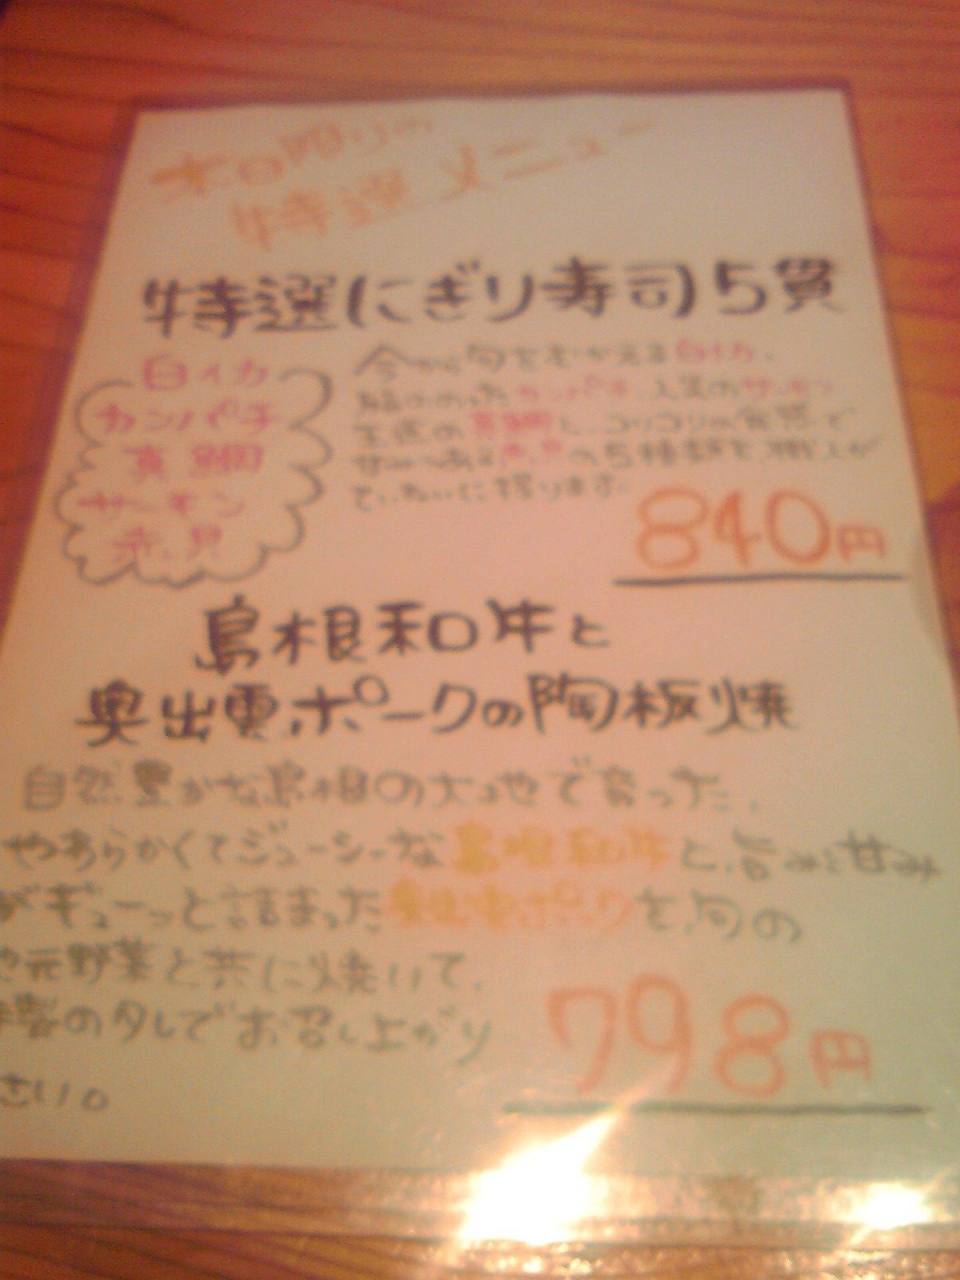 本日限りの
特選メニュー
特選にぎり寿司5貫
白イカ
カンパチ
真鯛
サーモン
赤貝
今から旬をむかえる白イカ、
脂ののったカンパチ、人気のサーモン
王道の真鯛と、コリコリの食感で
甘みのある赤貝の5種類を、職人が
ていねいに握ります。
840円
島根和牛と
奥出雲ポークの陶板焼
自然豊かな島根の大地で育った、
やわらかくてジューシーな島根和牛と、旨みと甘み
がギューっと詰まった奥出雲ポークを、旬の
地元野菜と共に焼いて、
製のタレでお召し上がり
さい。
798円